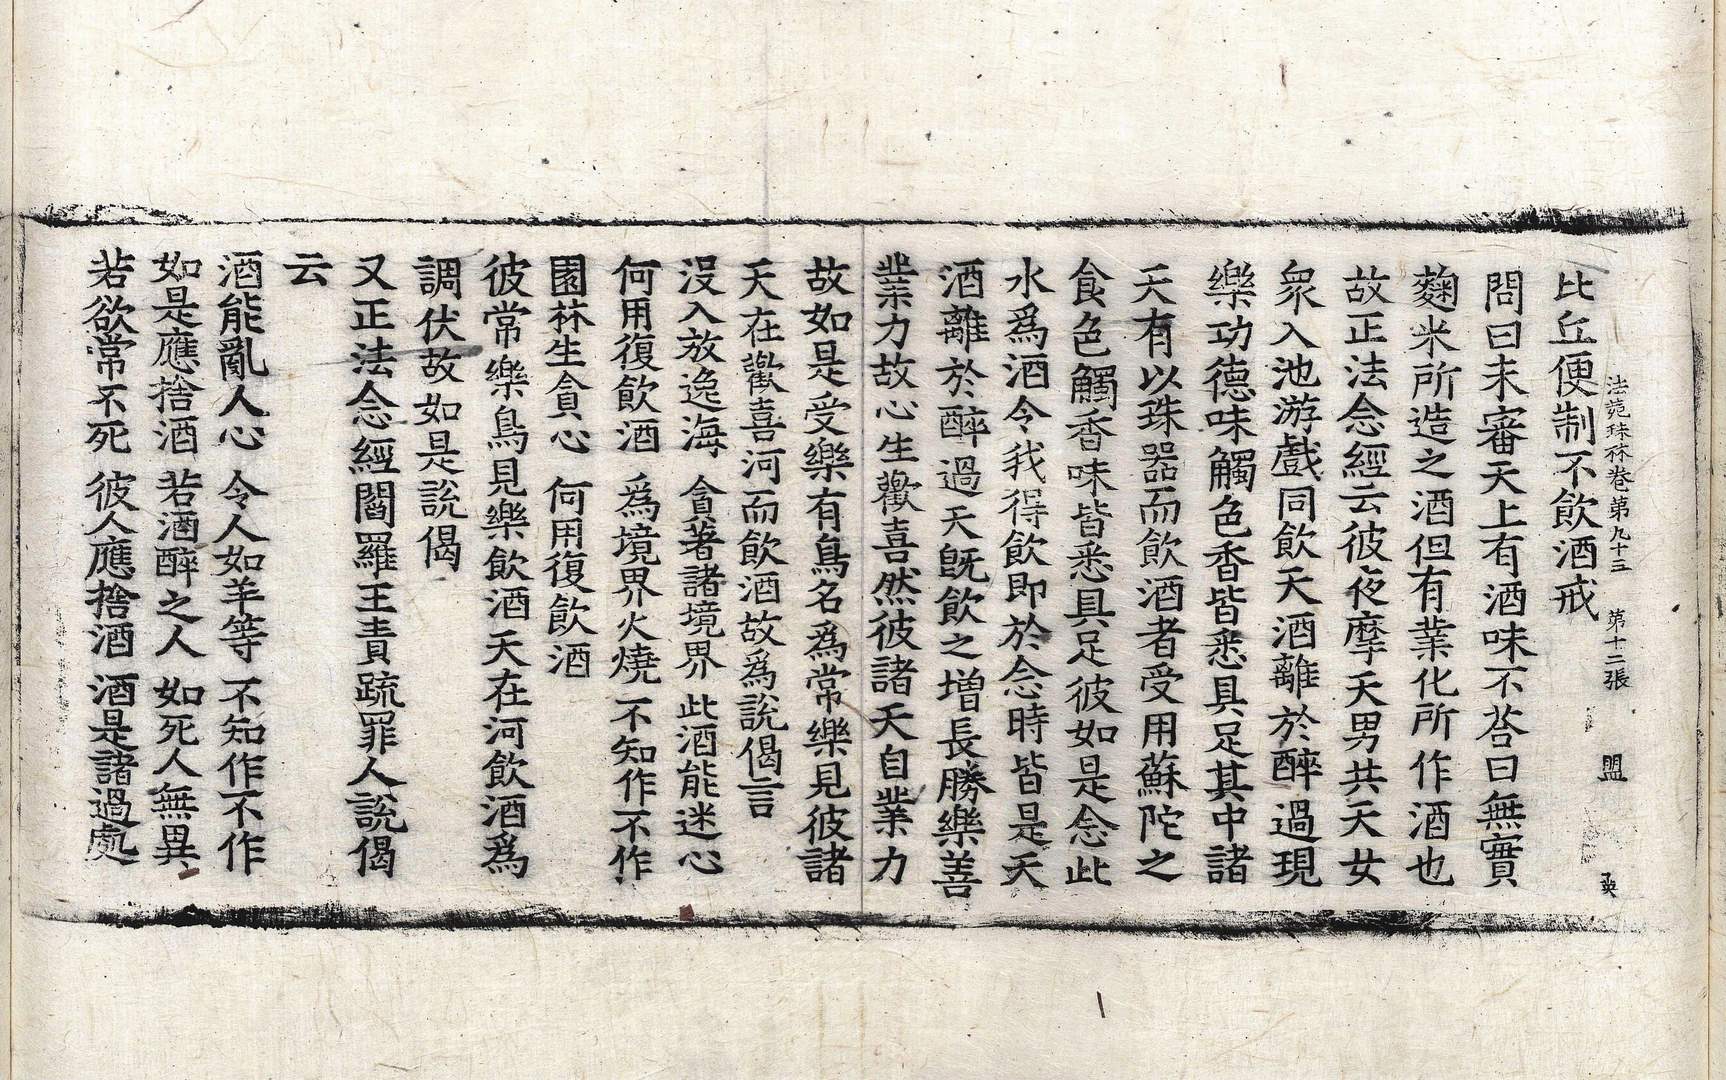 法苑珠林卷第九十三　第十二張　盟
比丘便制不飲酒戒
問曰未審天上有酒味不荅曰無實
麴米所造之酒但有業化所作酒也
故正法念經云彼夜摩天男共天女
衆入池游戲同飲天酒離於醉過現
樂功德味觸色香皆悉具足其中諸
天有以珠器而飲酒者受用蘇陀之
食色觸香味皆悉具足彼如是念此
水爲酒令我得飲即於念時皆是天
酒離於醉過天既飲之增長勝樂善
業力故心生歡喜然彼諸天自業力
故如是受樂有鳥名爲常樂見彼諸
天在歡喜河而飲酒故爲說偈言
沒入放逸海　貪著諸境界　此酒能迷心
何用復飲酒　爲境界火燒　不知作不作
園林生貪心　何用復飲酒
彼常樂鳥見樂飲酒天在河飲酒爲
調伏故如是說偈
又正法念經閻羅王責疏罪人說偈
云
酒能亂人心　令人如羊等　不知作不作
如是應捨酒　若酒醉之人　如死人無異
若欲常不死　彼人應捨酒　酒是諸過處